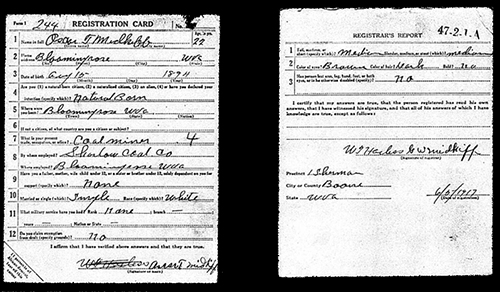 Form 1 244 REGISTRATION CARD No.
1 Name in full Oscar T Midkiff Age, in yrs. 22
2 Bloomingrose WVa
3 Date of birth Aug 15 1894
4 Are you (1) a natural-born citizen, (2) a naturalized citizen, (3) an alien, (4) or have you declared your
intention (specify which)? Natural Born
5 Where were you born? Bloomingrose WVa
6 If not a citizen, of what country are you a citizen or subject?
7 What is your present trade, occupation, or office? Coal miner 4
8 By whom employed? Coal Co
Where employed? Bloomingrose WVa
9 Have you a father, mother, wife, child under 12, or a sister or brother under 12, solely dependent on you for
support (specify which)? None
10 Married or single (which)? Single Race (specify which)? White
11 What military service have you had? Rank None ; branch
years Nation or State
12 Do you claim exemption from draft (specify grounds)? No
I affirm that I have verified above answers and that they are true.
Midkiff
(Signature or mark)
REGISTRAR'S REPORT 47-2-1-A
1 Tall, medium, or short (specify which)? Medium Slender, medium, or stout (which)? medium
2 Color of eyes? Brown Color of hair? Dark Bald? No
3 Has person lost arm, leg, hand, foot, or both eyes, or is he otherwise disabled (specify)? No
I certify that my answers are true, that the person registered has read his own
answers, that I have witnessed his signature, and that all of his answers of which I have
knowledge are true, except as follows:
(Signature of registrar)
Precinct 1 Sherman
City or County Boone
State WVa 6/5/1917
(Date of registration)